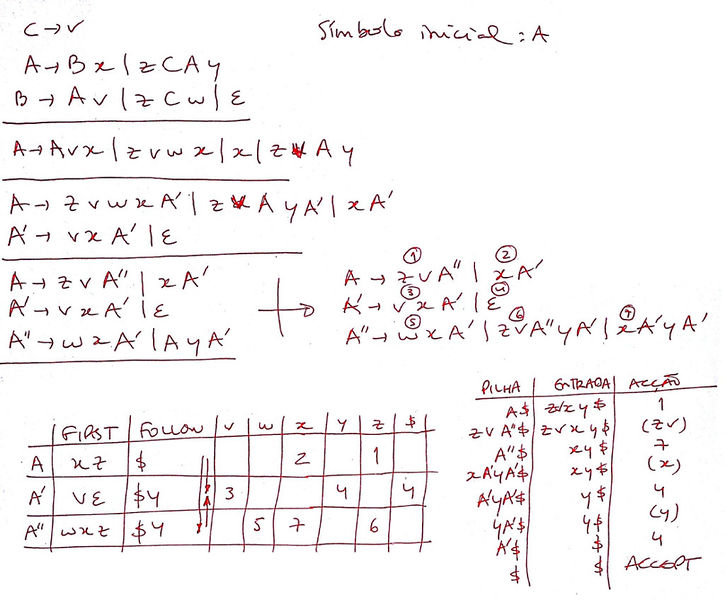 C → v
Símbolo inicial: A
A → B x | z C A y
B → A v | z C w | ε
A → A v x | z v w x | x | z v A y
A → z v w x A' | z v A y A' | x A'
A' → v x A' | ε
A → z v A'' | x A'
A' → v x A' | ε
A'' → w x A' | A y A'
① ②
A → z v A'' | x A'
③ ④
A' → v x A' | ε
⑤ ⑥ ⑦
A'' → w x A' | z v A'' y A' | x A' y A'
FIRST FOLLOW v w x y z $
A x z $ 2 1
A' v ε $ y 3 4 4
A'' w x z $ y 5 7 6
PILHA ENTRADA ACÇÃO
A$ z v x y $ 1
z v A''$ z v x y $ (z v)
A''$ x y $ 7
x A' y A'$ x y $ (x)
A' y A'$ y $ 4
y A'$ y $ (y)
A'$ $ 4
$ $ ACCEPT